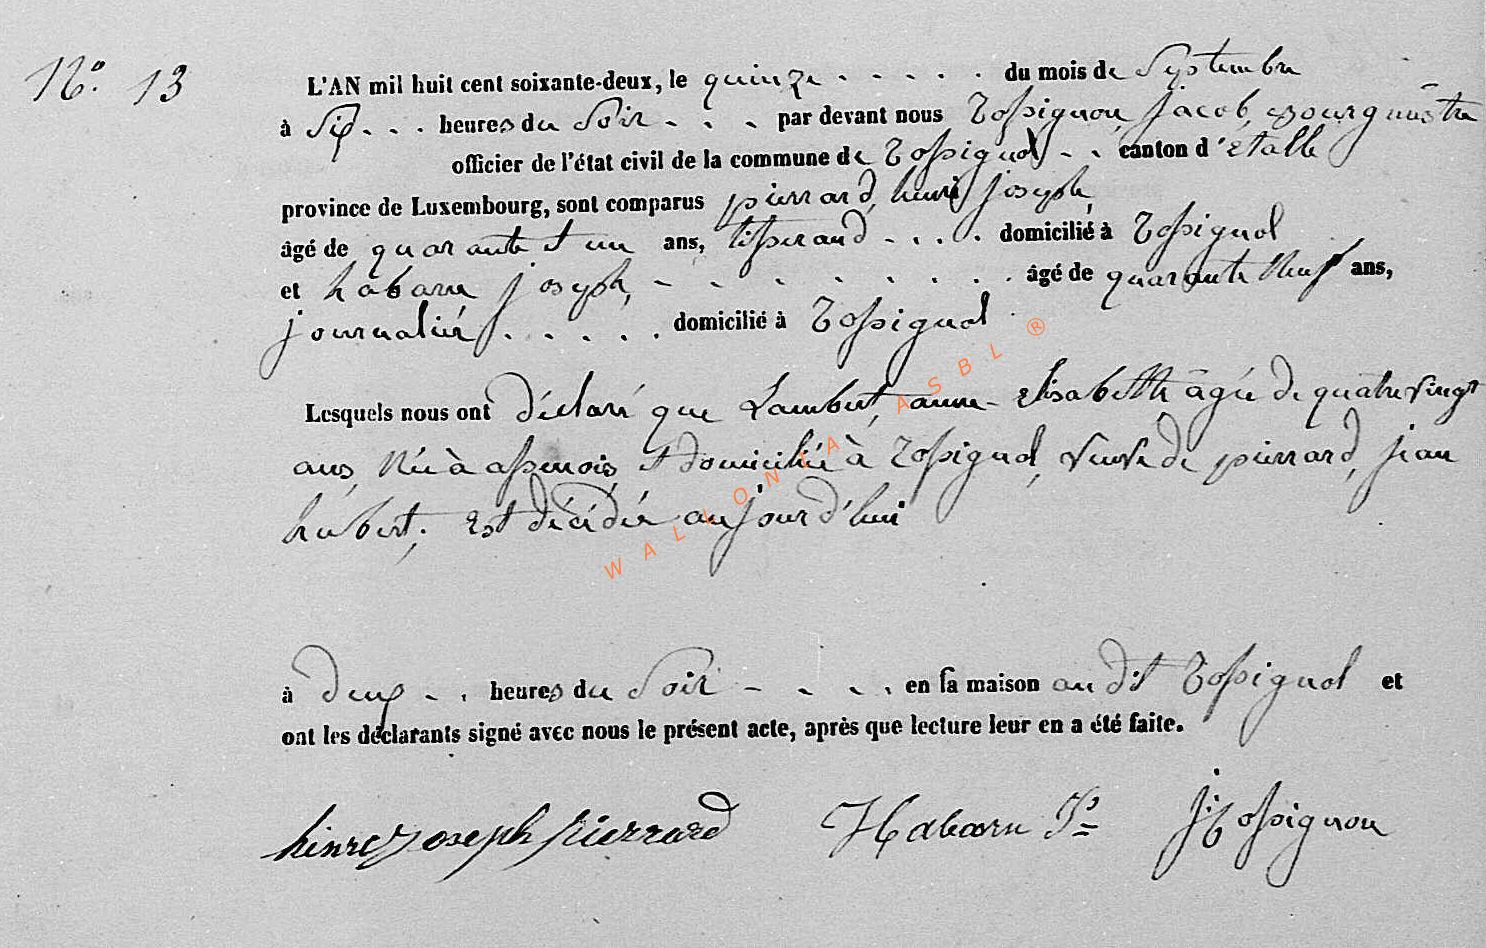 N.° 13
L'AN mil huit cent soixante-deux, le quinze - - - - - du mois de Septembre
à Six - - . heures du Soir - - - - par devant nous Rossignon, Jacob, Bourgmestre
officier de l'état civil de la commune de Rossignol - - canton d'Etalle
province de Luxembourg, sont comparus pierrard, henri joseph,
âgé de quarante et un ans, tisserand - . . . domicilié à Rossignol
et habaru joseph, - - - - - - - . . âgé de quarante Neuf ans,
journalier, . . . . . domicilié à Rossignol
Lesquels nous ont déclaré que Lambert, anne - Elisabeth âgée de quatre vingt
ans, Née à assenois, et domiciliée à Rossignol, veuve de pierrard, jean
hubert, Est décédée aujourd'hui
à deux - . heures du Soir - - . . en sa maison au dit Rossignol et
ont les déclarants signé avec nous le présent acte, après que lecture leur en a été faite.
hinrey joseph pierrard Habaru Jph J. Rossignon
WALLONIA ASBL ®